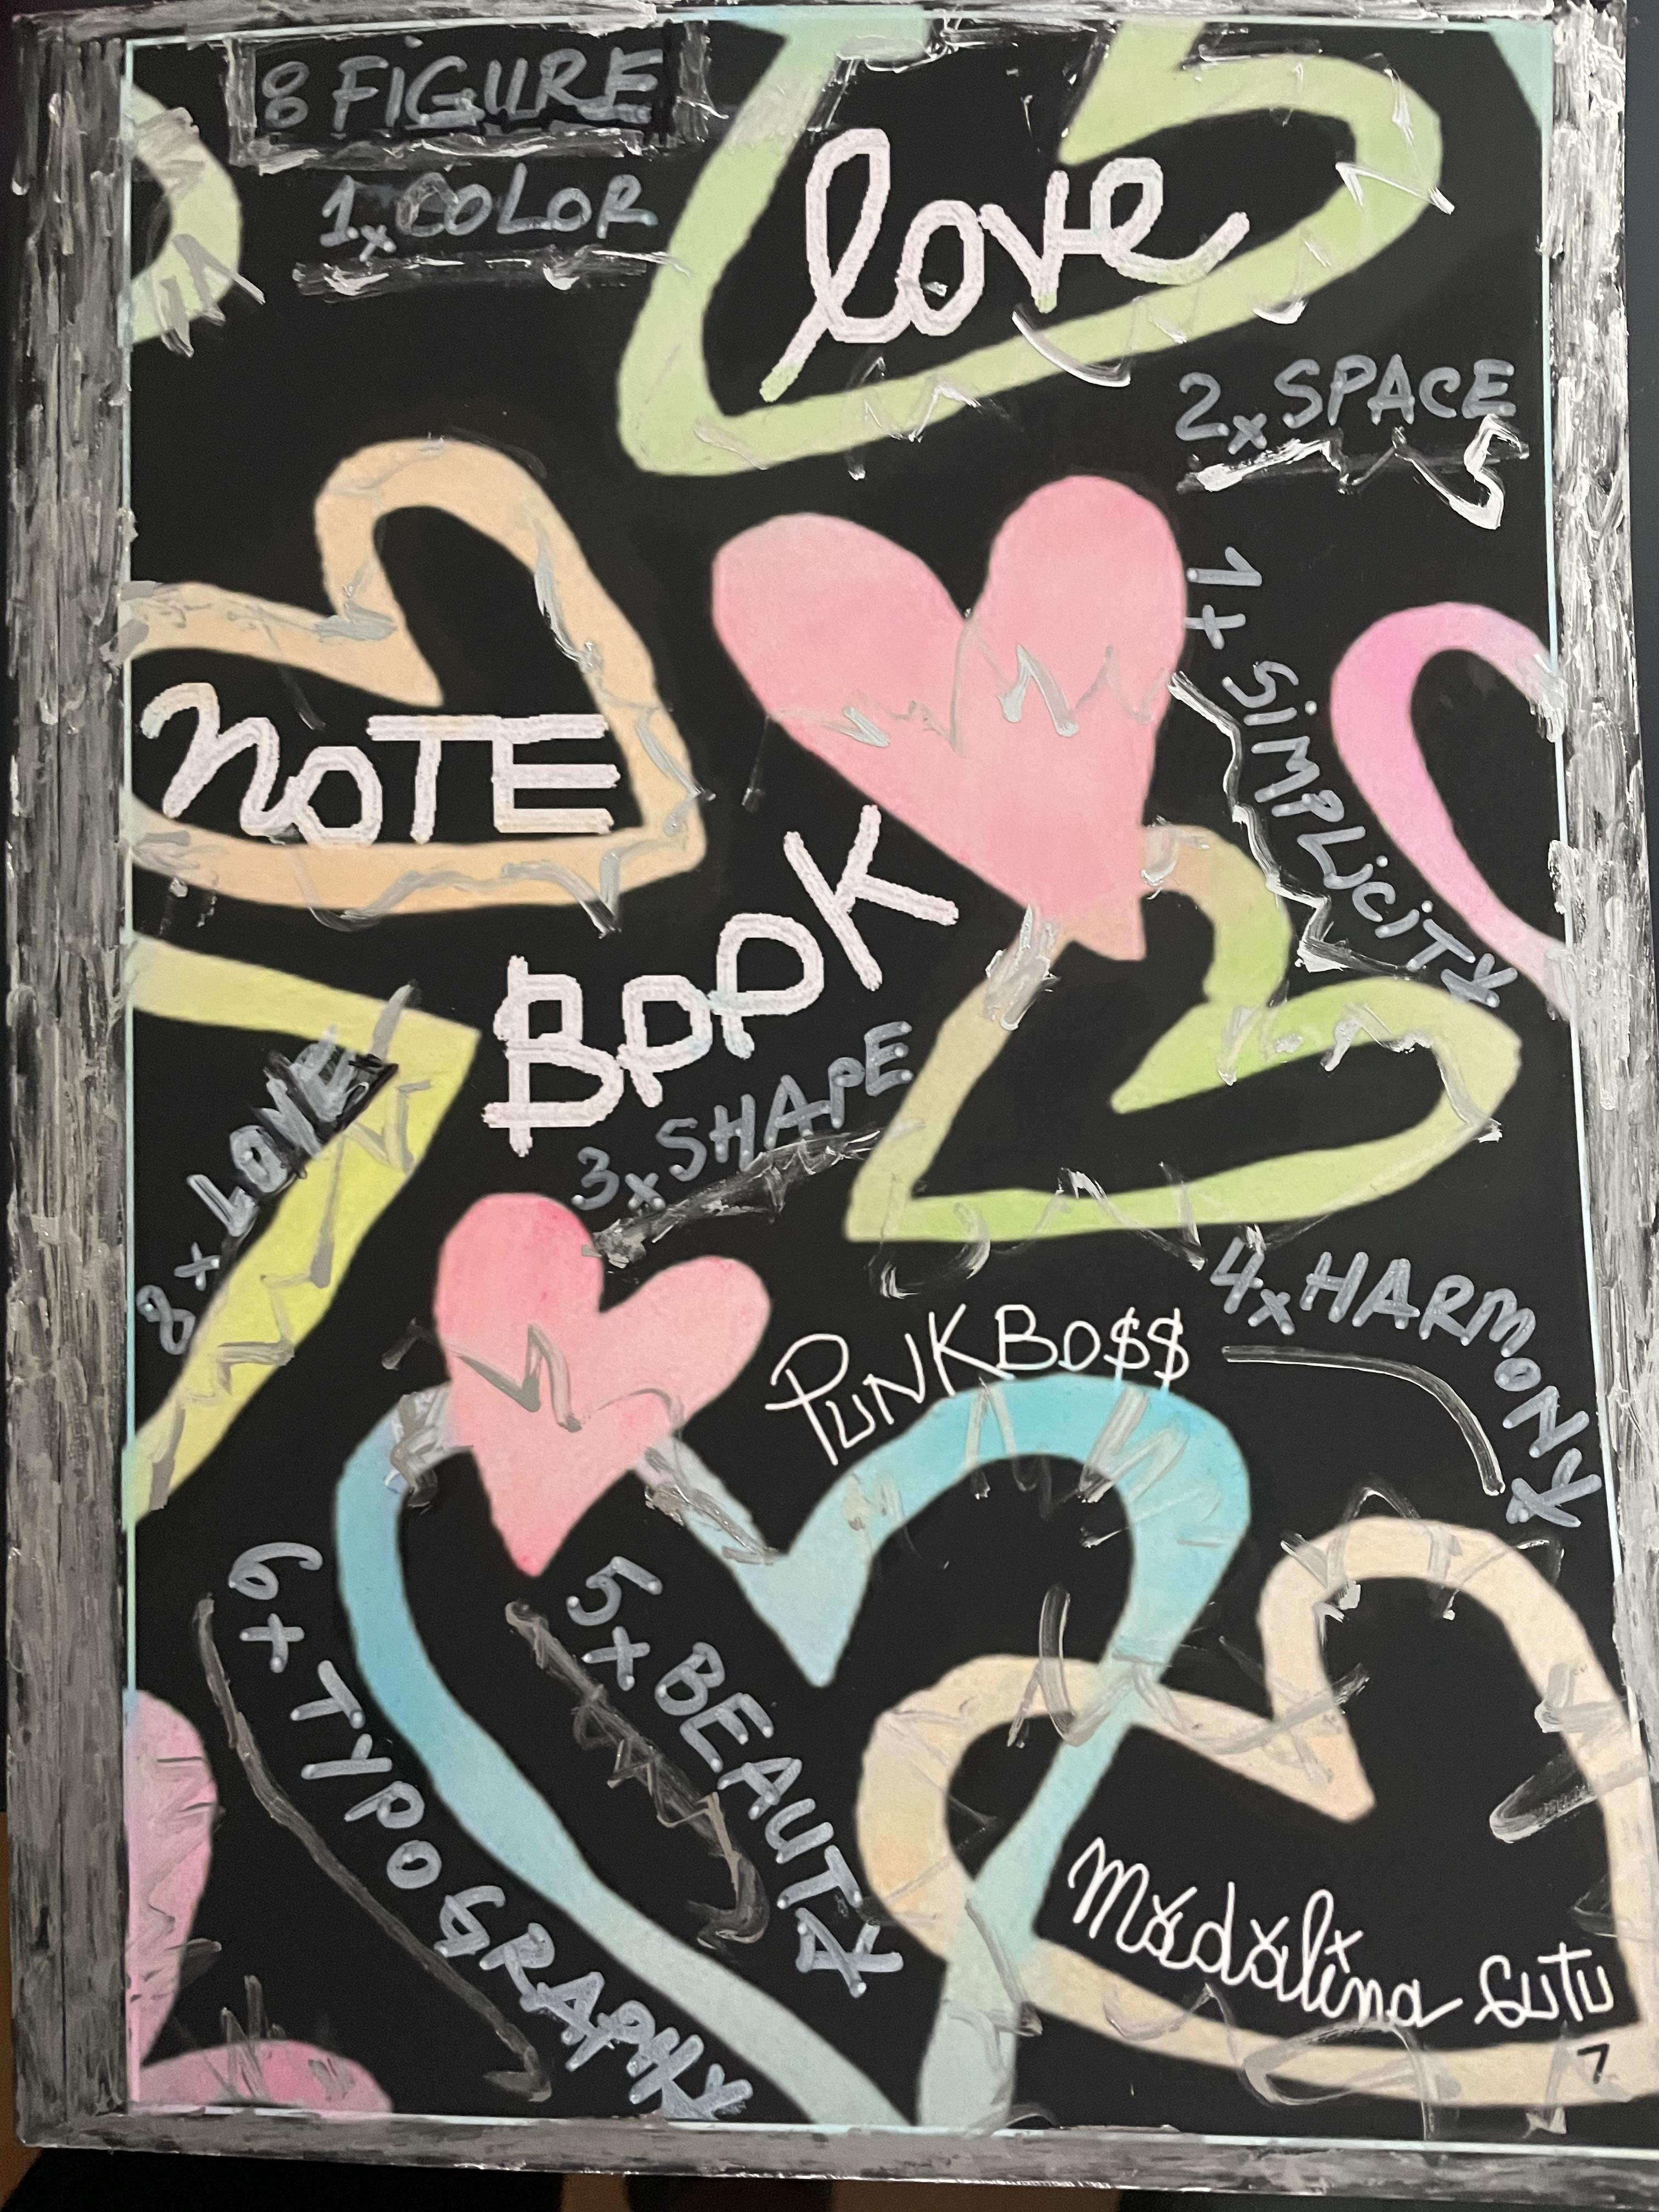 8 FIGURE
1x COLOR
love
2x SPACE
1x SiMPLiCiTY
NOTE
BOOK
3x SHAPE
8x LOVE
4x HARMONY
PUNKBO$$
5x BEAUTY
6x TYPOGRAPHY
Mădălina Guțu
7